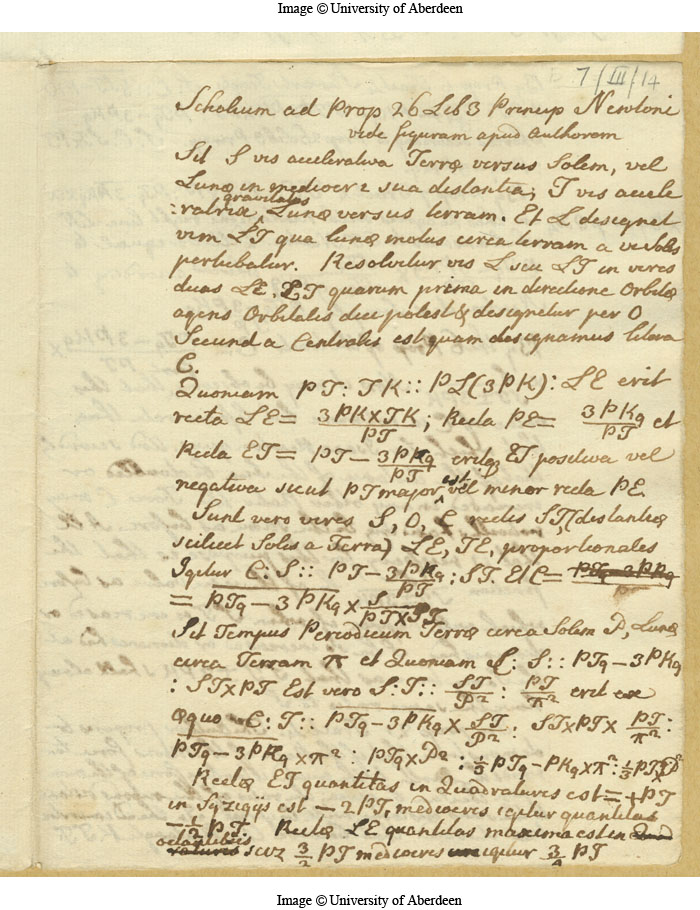 Image © University of Aberdeen
7/III/14
Scholium ad Prop 26 Lib 3 Princip Newtoni
vide figuram apud Authorem
Sit S vis accelerativa Terræ versus Solem, vel
Lunæ in mediocri sua distantia; T vis accele
:ratrix gravitatis Lunæ versus terram. Et L designet
vim LT qua lunæ motus circa terram a vi Solis
perturbatur. Resolvitur vis L seu LT in vires
duas LE, ET quarum prima in directione Orbitæ
agens Orbitalis dici potest & designetur per O
Secunda Centralis est quam designamus litera
C.
Quoniam PT : TK :: PL (3PK) : LE erit
recta LE = 3PK×TK/PT ; Recta PE = 3PKq/PT et
Recta ET = PT − 3PKq/PT eritq ET positiva vel
negativa sicut PT major est vel minor recta PE
Sunt vero vires S, O, C rectis ST, (distantiæ
scilicet Solis a Terra) LE, TE, proportionales
Igitur C : S :: PT − 3PKq/PT : ST. Et C =
= PTq − 3PKq × S/PT×ST
Sit Tempus Periodicum Terræ circa Solem P, Lunæ
circa Terram π et Quoniam C : S :: PTq − 3PKq
: ST×PT Est vero S : T :: ST/P² : PT/π² erit ex
æquo C : T :: PTq − 3PKq × ST/P² : ST×PT× PT/π² :
PTq − 3PKq × π² : PTq × P² : ⅓ PTq − PKq × π² : ⅓ PTq P²
Rectæ ET quantitas in Quadraturis est = + PT
in Syzigijs est − 2PT, mediocris igitur quantitas
− ½ PT. Rectæ LE quantitas maxima est in
octantibus sciz 3/2 PT mediocris igitur 3/4 PT
Image © University of Aberdeen